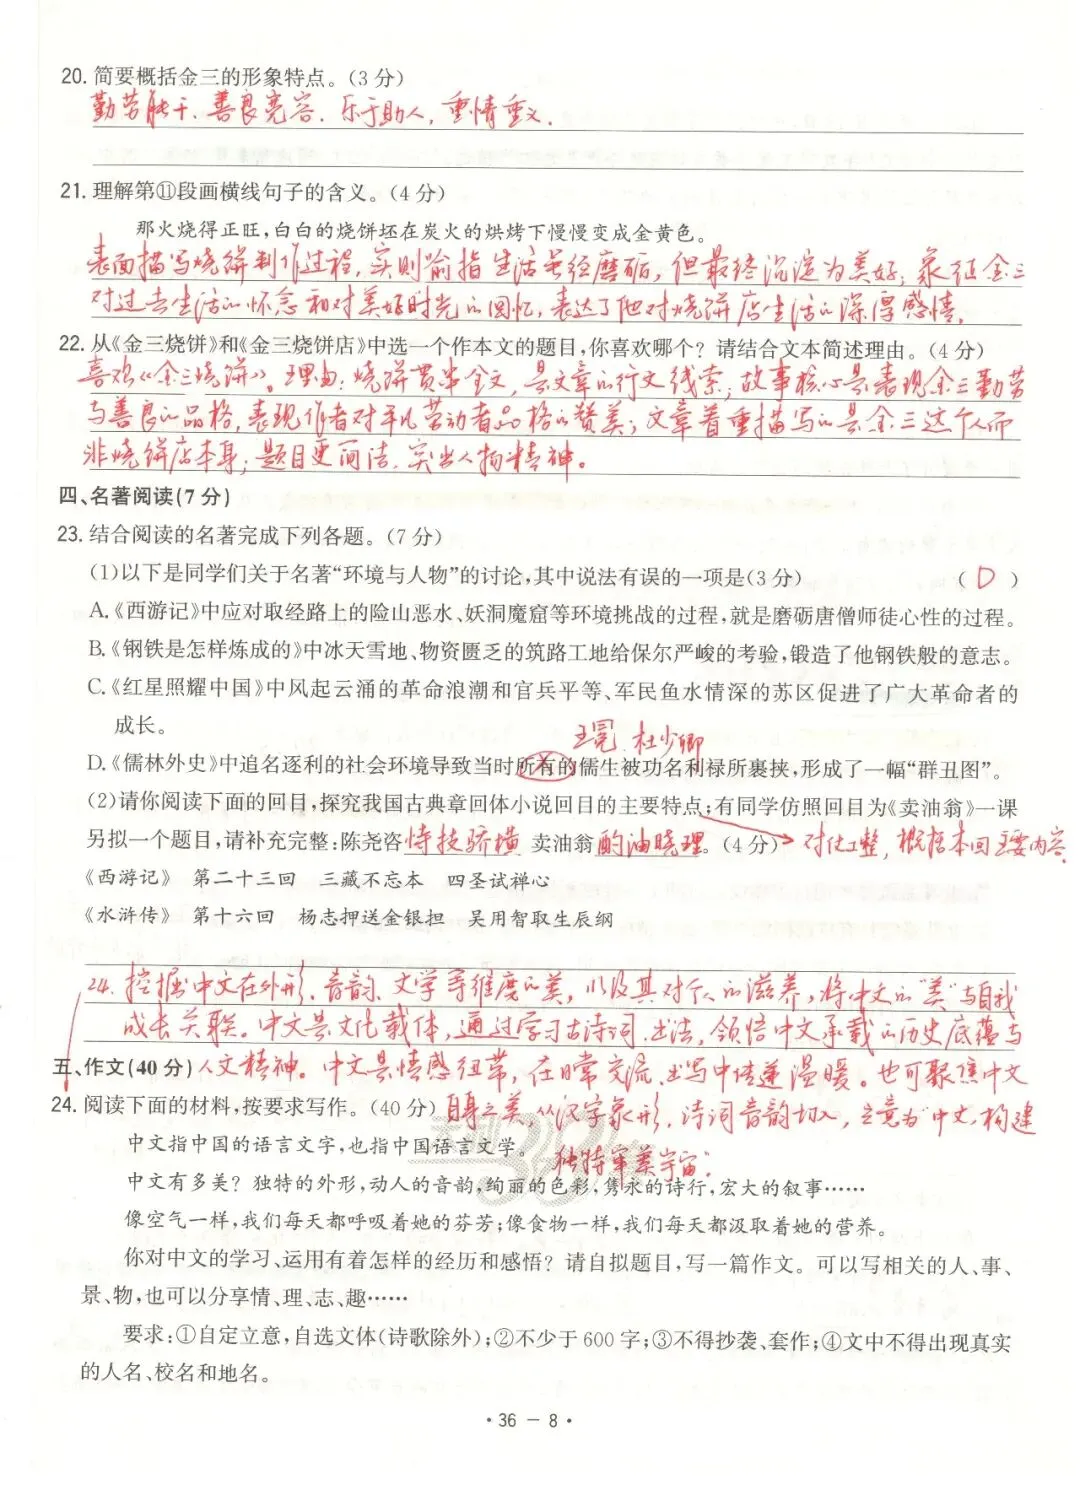 20. 简要概括金三的形象特点。(3 分)
勤劳能干、善良宽容、乐于助人,重情重义.
21. 理解第⑪段画横线句子的含义。(4 分)
那火烧得正旺,白白的烧饼坯在炭火的烘烤下慢慢变成金黄色。
表面描写烧饼制作过程,实则喻指生活虽经磨砺,但最终沉淀为美好;象征金三
对过去生活的怀念和对美好时光的回忆,表达了他对烧饼店生活的深厚感情.
22. 从《金三烧饼》和《金三烧饼店》中选一个作本文的题目,你喜欢哪个? 请结合文本简述理由。(4 分)
喜欢《金三烧饼》。理由:烧饼贯串全文,是文章的行文线索;故事核心是表现金三勤劳
与善良的品格,表现作者对平凡劳动者品格的赞美;文章着重描写的是金三这个人而
非烧饼店本身;题目更简洁,突出人物精神。
四、名著阅读(7 分)
23. 结合阅读的名著完成下列各题。(7 分)
(1)以下是同学们关于名著“环境与人物”的讨论,其中说法有误的一项是(3 分) ( D )
A.《西游记》中应对取经路上的险山恶水、妖洞魔窟等环境挑战的过程,就是磨砺唐僧师徒心性的过程。
B.《钢铁是怎样炼成的》中冰天雪地、物资匮乏的筑路工地给保尔严峻的考验,锻造了他钢铁般的意志。
C.《红星照耀中国》中风起云涌的革命浪潮和官兵平等、军民鱼水情深的苏区促进了广大革命者的
成长。
王冕、杜少卿
D.《儒林外史》中追名逐利的社会环境导致当时所有的儒生被功名利禄所裹挟,形成了一幅“群丑图”。
(2)请你阅读下面的回目,探究我国古典章回体小说回目的主要特点;有同学仿照回目为《卖油翁》一课
另拟一个题目,请补充完整:陈尧咨 恃技骄横 卖油翁 酌油晓理。(4 分) 对仗工整,概括本回主要内容
《西游记》 第二十三回 三藏不忘本 四圣试禅心
《水浒传》 第十六回 杨志押送金银担 吴用智取生辰纲
24. 挖掘中文在外形、音韵、文学等维度的美,以及其对个人的滋养,将中文的“美”与自我
成长关联。中文是文化载体,通过学习古诗词、书法,领悟中文承载的历史底蕴与
五、作文(40 分) 人文精神。中文是情感纽带,在日常交流、书写中传递温暖。也可聚焦中文
24. 阅读下面的材料,按要求写作。(40 分) 自身之美,从汉字象形、诗词音韵切入,立意为“中文,构建
中文指中国的语言文字,也指中国语言文学。
独特审美宇宙”.
中文有多美? 独特的外形,动人的音韵,绚丽的色彩,隽永的诗行,宏大的叙事……
像空气一样,我们每天都呼吸着她的芬芳;像食物一样,我们每天都汲取着她的营养。
你对中文的学习、运用有着怎样的经历和感悟? 请自拟题目,写一篇作文。可以写相关的人、事、
景、物,也可以分享情、理、志、趣……
要求:①自定立意,自选文体(诗歌除外);②不少于 600 字;③不得抄袭、套作;④文中不得出现真实
的人名、校名和地名。
· 36 — 8 ·